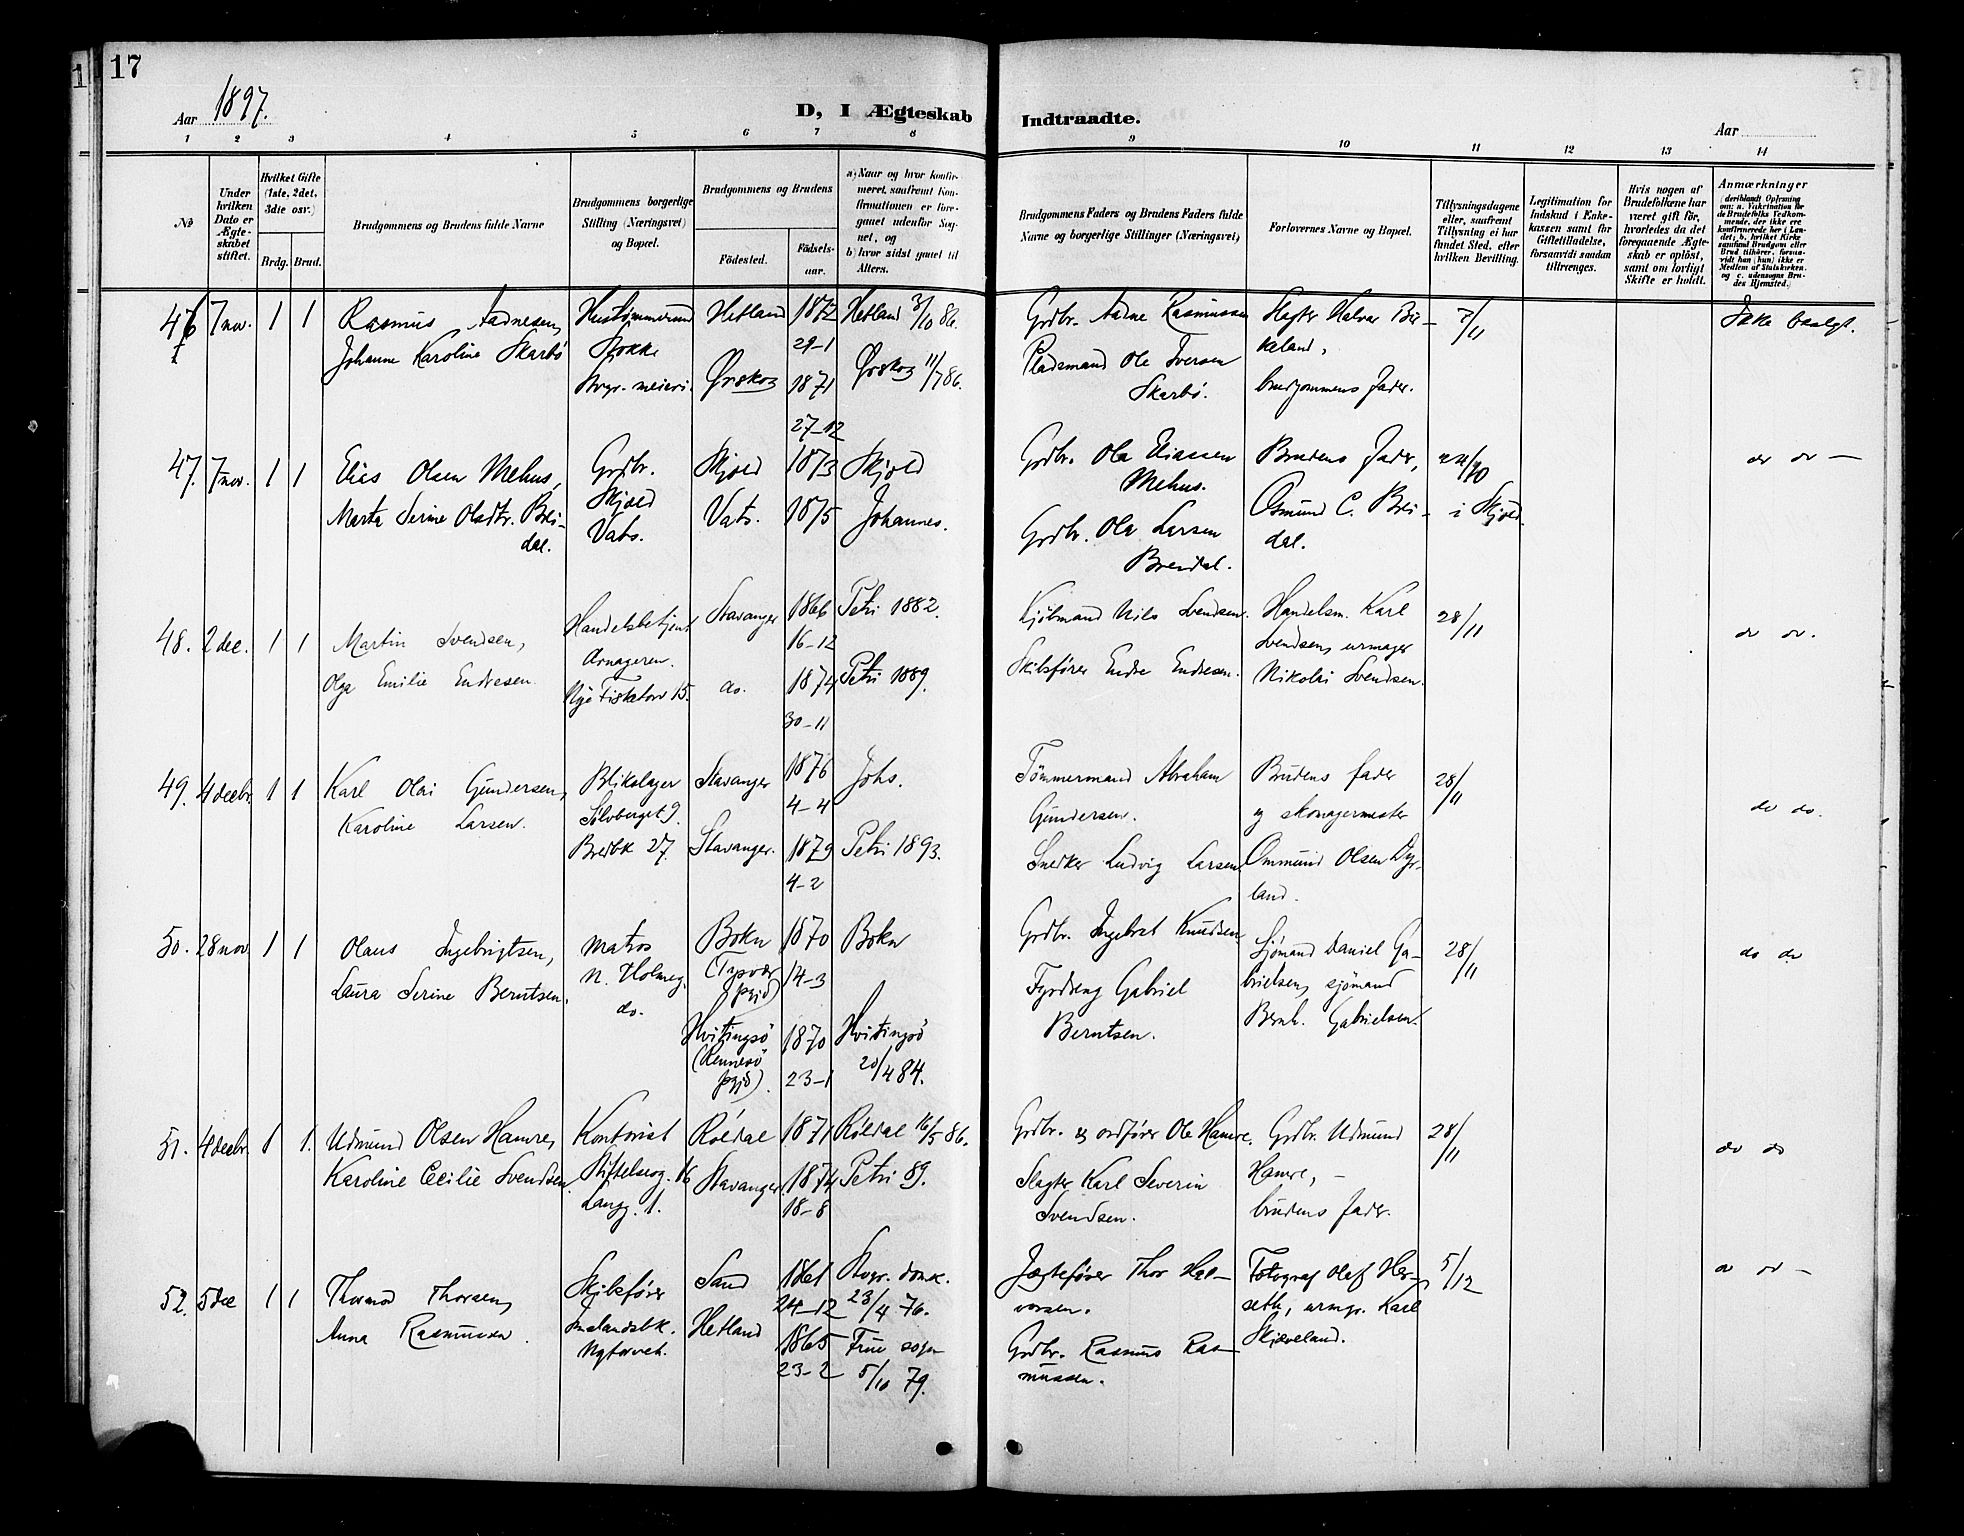 17
Aar 1897.
D, I Ægteskab Indtraadte.
Aar
1 2 3 4 5 6 7 8 9 10 11 12 13 14
No
Under hvilken Dato er Ægteskabet stiftet.
Hvilket Gifte (1ste, 2det, 3die osv.)
Brdg. Brud.
Brudgommens og Brudens fulde Navne
Brudgommens borgerlige Stilling (Næringsvei) og Bopæl.
Brudgommens og Brudens
Födested.
Födselsaar.
a) Naar og hvor konfirmeret, saafremt Konfirmationen er foregaaet udenfor Sognet, og
b) hvor sidst gaaet til Alters.
Brudgommens Faders og Brudens Faders fulde Navne og borgerlige Stillinger (Næringsvei)
Forlovernes Navne og Bopæl.
Tillysningsdagene eller, saafremt Tillysning ei har fundet Sted, efter hvilken Bevilling.
Legitimation for Indskud i Enkekassen samt for Giftetilladelse, forsaavidt saadan tiltrænges.
Hvis nogen af Brudefolkene har været gift för, hvorledes da det foregaaende Ægteskab er oplöst, samt om lovligt Skifte er holdt.
Anmærkninger
46 7 nov. 1 1
Rasmus Aadnesen,
Johanne Karoline Skarbö
Hustömmermand
Stokke
Stvgr. meieri.
Hetland
Ørskog
1872
29-1
1871
27-12
Hetland 3/10 86.
Ørskog 11/7 86.
Grdbr. Aadne Rasmussen
Pladsmand Ole Iversen
Skarbö.
Slagter Halvar Birkeland,
brudgommens fader.
7/11
Ikke beslegt.
47. 7 nov. 1 1
Elias Olsen Mehus,
Marta Serine Olsdtr. Breidal.
Grdbr.
Skjold
Vats.
Skjold
Vats.
1873
1875
Skjold
Johannes.
Grdbr. Ola Eliassen
Mehus.
Grdbr. Ola Larsen
Breidal.
Brudens fader,
Osmund C. Breidal.
24/10
i Skjold.
do do —
48. 2 dec. 1 1
Martin Svendsen,
Olga Emilie Endresen.
Handelsbetjent
Arnageren.
Nye Fisketorv 15.
Stavanger
do.
1866
16-12
1874
30-11
Petri 1882.
Petri 1889.
Kjöbmand Nils Svendsen.
Skibsfører Endre Endresen.
Handelsm. Karl
Svendsen, urmager
Nikolai Svendsen.
28/11
do do.
49. 4 decbr. 1 1
Karl Olai Gundersen,
Karoline Larsen.
Blikslager
Sölvberget 9.
Breibk 27.
Stavanger
Stavanger.
1876
4-4
1879
4-2
Johs.
Petri 1893.
Tömmermand Abraham
Gundersen.
Snedker Ludvig Larsen.
Brudens fader
og skomagermester
Ommund Olsen Dyrland.
28/11
do do.
50. 28 nov 1 1
Olaus Ingebrigtsen,
Laura Serine Berntsen.
Matros
N. Holmeg.
do.
Bokn
(Tysvær
pgjd)
Hvitingsö
(Rennesö
pgjd).
1870
14-3
1870
23-1
Bokn
Hvitingsö
20/4 84.
Grdbr. Ingebret Knudsen
Fyrdreng Gabriel
Berntsen.
Sjömand Daniel Gabrielsen, sjömand
Bernh. Gabrielsen.
28/11
do do
51. 4 decbr. 1 1.
Udmund Olsen Hamre,
Karoline Cecilie Svendsen.
Kontorist
Stiftelsesg. 16
Langg. 1.
Röldal
Stavanger.
1871
1874
18-8
Röldal 16/5 86.
Petri 89.
Grdbr. og ordfører Ole Hamre.
Slagter Karl Severin
Svendsen.
Grdbr. Udmund
Hamre, -
brudens fader.
28/11
do do
52. 5 dec 1 1
Thormod Thorsen,
Anna Rasmussen.
Skibsfører
Nytorvet.
Sand
Hetland
1861
24-12
1865
23-2
Stvgr. domk.
23/4 76.
Frue sogn
5/10 79.
Jægtefører Thor Halvorsen.
Grdbr. Rasmus Rasmussen.
Fotograf Olaf Herseth, urmgr. Karl
Skjæveland.
5/12
do do —